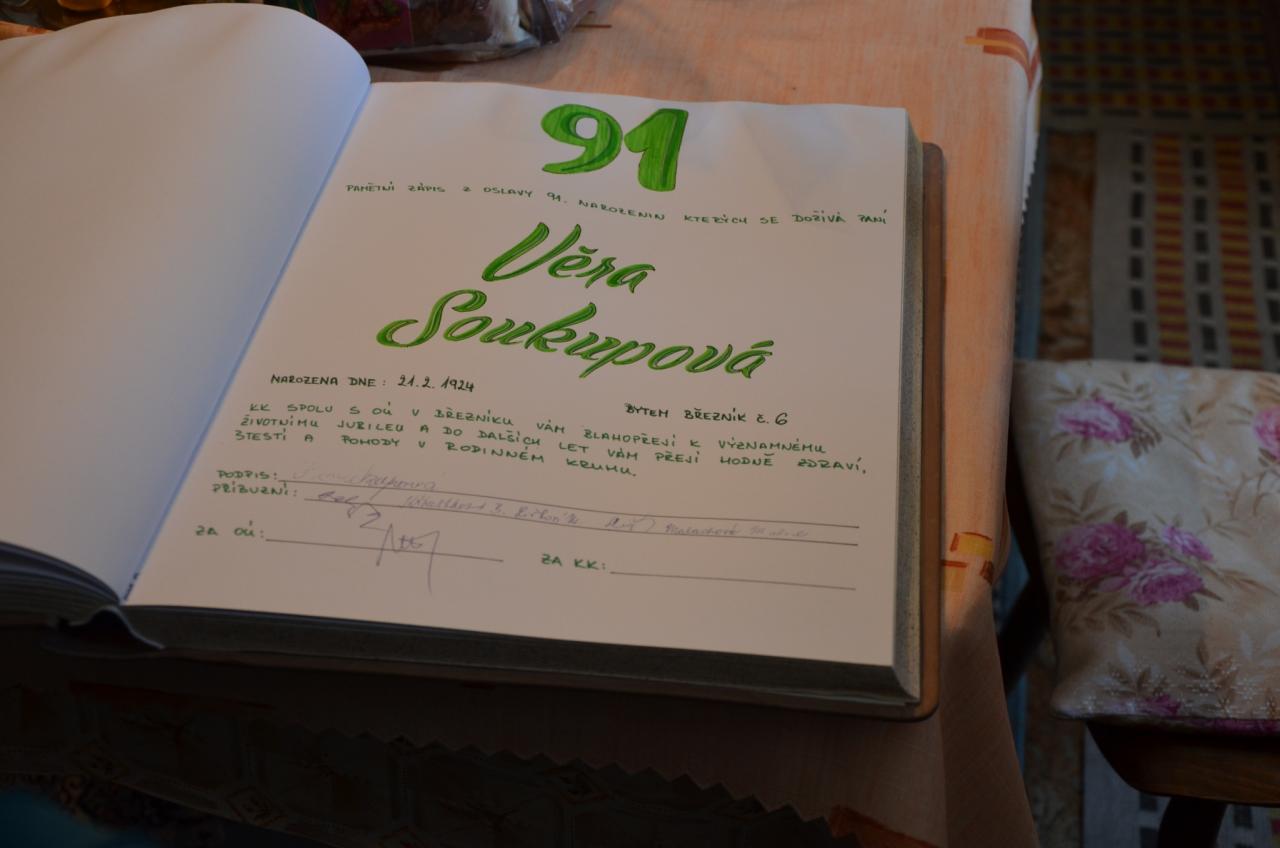 91
PAMĚTNÍ ZÁPIS Z OSLAVY 91. NAROZENIN KTERÝCH SE DOŽÍVÁ PANÍ
Věra
Soukupová
NAROZENA DNE: 21.2.1924 BYTEM BŘEZNÍK Č.6
KK SPOLU S OÚ V BŘEZNÍKU VÁM BLAHOPŘEJÍ K VÝZNAMNÉMU
ŽIVOTNÍMU JUBILEU A DO DALŠÍCH LET VÁM PŘEJÍ HODNĚ ZDRAVÍ,
ŠTESTÍ A POHODY V RODINNÉM KRUHU.
PODPIS:
PŘÍBUZNÍ:
ZA OÚ: ZA KK: